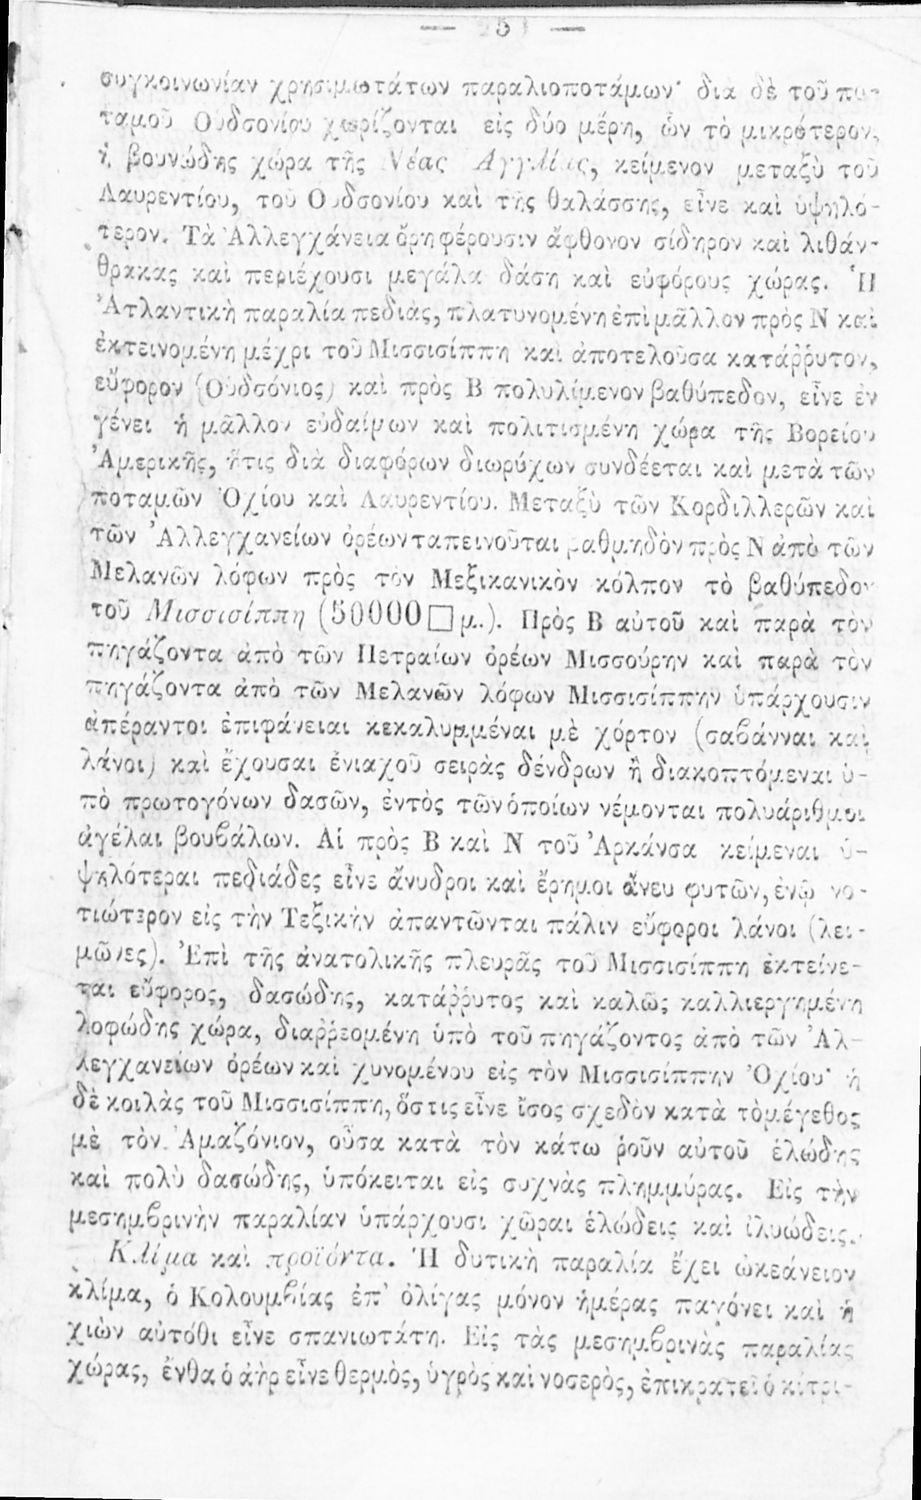 — 25 —
συγκοινωνίαν χρησιμωτάτων παραλιοποτάμων· διὰ δὲ τοῦ πο-
ταμοῦ Οὐδσονίου χωρίζονται εἰς δύο μέρη, ὧν τὸ μικρότερον,
ἡ βουνώδης χώρα τῆς Νέας Ἀγγλίας, κείμενον μεταξὺ τοῦ
Λαυρεντίου, τοῦ Οὐδσονίου καὶ τῆς θαλάσσης, εἶνε καὶ ὑψηλό-
τερον. Τὰ Ἀλλεγχάνεια ὄρη φέρουσιν ἄφθονον σίδηρον καὶ λιθάν-
θρακας καὶ περιέχουσι μεγάλα δάση καὶ εὐφόρους χώρας. Ἡ
Ἀτλαντικὴ παραλία πεδιὰς, πλατυνομένη ἐπὶ μᾶλλον πρὸς Ν καὶ
ἐκτεινομένη μέχρι τοῦ Μισσισίππη καὶ ἀποτελοῦσα κατάῤῥυτον,
εὔφορον (Οὐδσόνιος) καὶ πρὸς Β πολυλίμενον βαθύπεδον, εἶνε ἐν
γένει ἡ μᾶλλον εὐδαίμων καὶ πολιτισμένη χώρα τῆς Βορείου
Ἀμερικῆς, ἥτις διὰ διαφόρων διωρύχων συνδέεται καὶ μετὰ τῶν
ποταμῶν Ὀχίου καὶ Λαυρεντίου. Μεταξὺ τῶν Κορδιλλερῶν καὶ
τῶν Ἀλλεγχανείων ὀρέων ταπεινοῦται βαθμηδὸν πρὸς Ν ἀπὸ τῶν
Μελανῶν λόφων πρὸς τὸν Μεξικανικὸν κόλπον τὸ βαθύπεδον
τοῦ Μισσισίππη (50000 □ μ.). Πρὸς Β αὐτοῦ καὶ παρὰ τὸν
πηγάζοντα ἀπὸ τῶν Πετραίων ὀρέων Μισσούρην καὶ παρὰ τὸν
πηγάζοντα ἀπὸ τῶν Μελανῶν λόφων Μισσισίππην ὑπάρχουσιν
ἀπέραντοι ἐπιφάνειαι κεκαλυμμέναι μὲ χόρτον (σαβάνναι καὶ
λάνοι) καὶ ἔχουσαι ἐνιαχοῦ σειρὰς δένδρων ἢ διακοπτόμεναι ὑ-
πὸ πρωτογόνων δασῶν, ἐντὸς τῶν ὁποίων νέμονται πολυάριθμοι
ἀγέλαι βουβάλων. Αἱ πρὸς Β καὶ Ν τοῦ Ἀρκάνσα κείμεναι ὑ-
ψηλότεραι πεδιάδες εἶνε ἄνυδροι καὶ ἔρημοι ἄνευ φυτῶν, ἐνῷ νο-
τιώτερον εἰς τὴν Τεξικὴν ἀπαντῶνται πάλιν εὔφοροι λάνοι (λει-
μῶνες). Ἐπὶ τῆς ἀνατολικῆς πλευρᾶς τοῦ Μισσισίππη ἐκτείνε-
ται εὔφορος, δασώδης, κατάῤῥυτος καὶ καλῶς καλλιεργημένη
λοφώδης χώρα, διαῤῥεομένη ὑπὸ τοῦ πηγάζοντος ἀπὸ τῶν Ἀλ-
λεγχανείων ὀρέων καὶ χυνομένου εἰς τὸν Μισσισίππην Ὀχίου· ἡ
δὲ κοιλὰς τοῦ Μισσισίππη, ὅστις εἶνε ἴσος σχεδὸν κατὰ τὸ μέγεθος
μὲ τὸν Ἀμαζόνιον, οὖσα κατὰ τὸν κάτω ῥοῦν αὐτοῦ ἑλώδης
καὶ πολὺ δασώδης, ὑπόκειται εἰς συχνὰς πλημμύρας. Εἰς τὴν
μεσημβρινὴν παραλίαν ὑπάρχουσι χῶραι ἑλώδεις καὶ ἰλυώδεις.
Κλίμα καὶ προϊόντα. Ἡ δυτικὴ παραλία ἔχει ὠκεάνειον
κλίμα, ὁ Κολουμβίας ἐπ' ὀλίγας μόνον ἡμέρας παγόνει καὶ ἡ
χιὼν αὐτόθι εἶνε σπανιωτάτη. Εἰς τὰς μεσημβρινὰς παραλίας
χώρας, ἔνθα ὁ ἀὴρ εἶνε θερμὸς, ὑγρὸς καὶ νοσερὸς, ἐπικρατεῖ ὁ κίτρι-